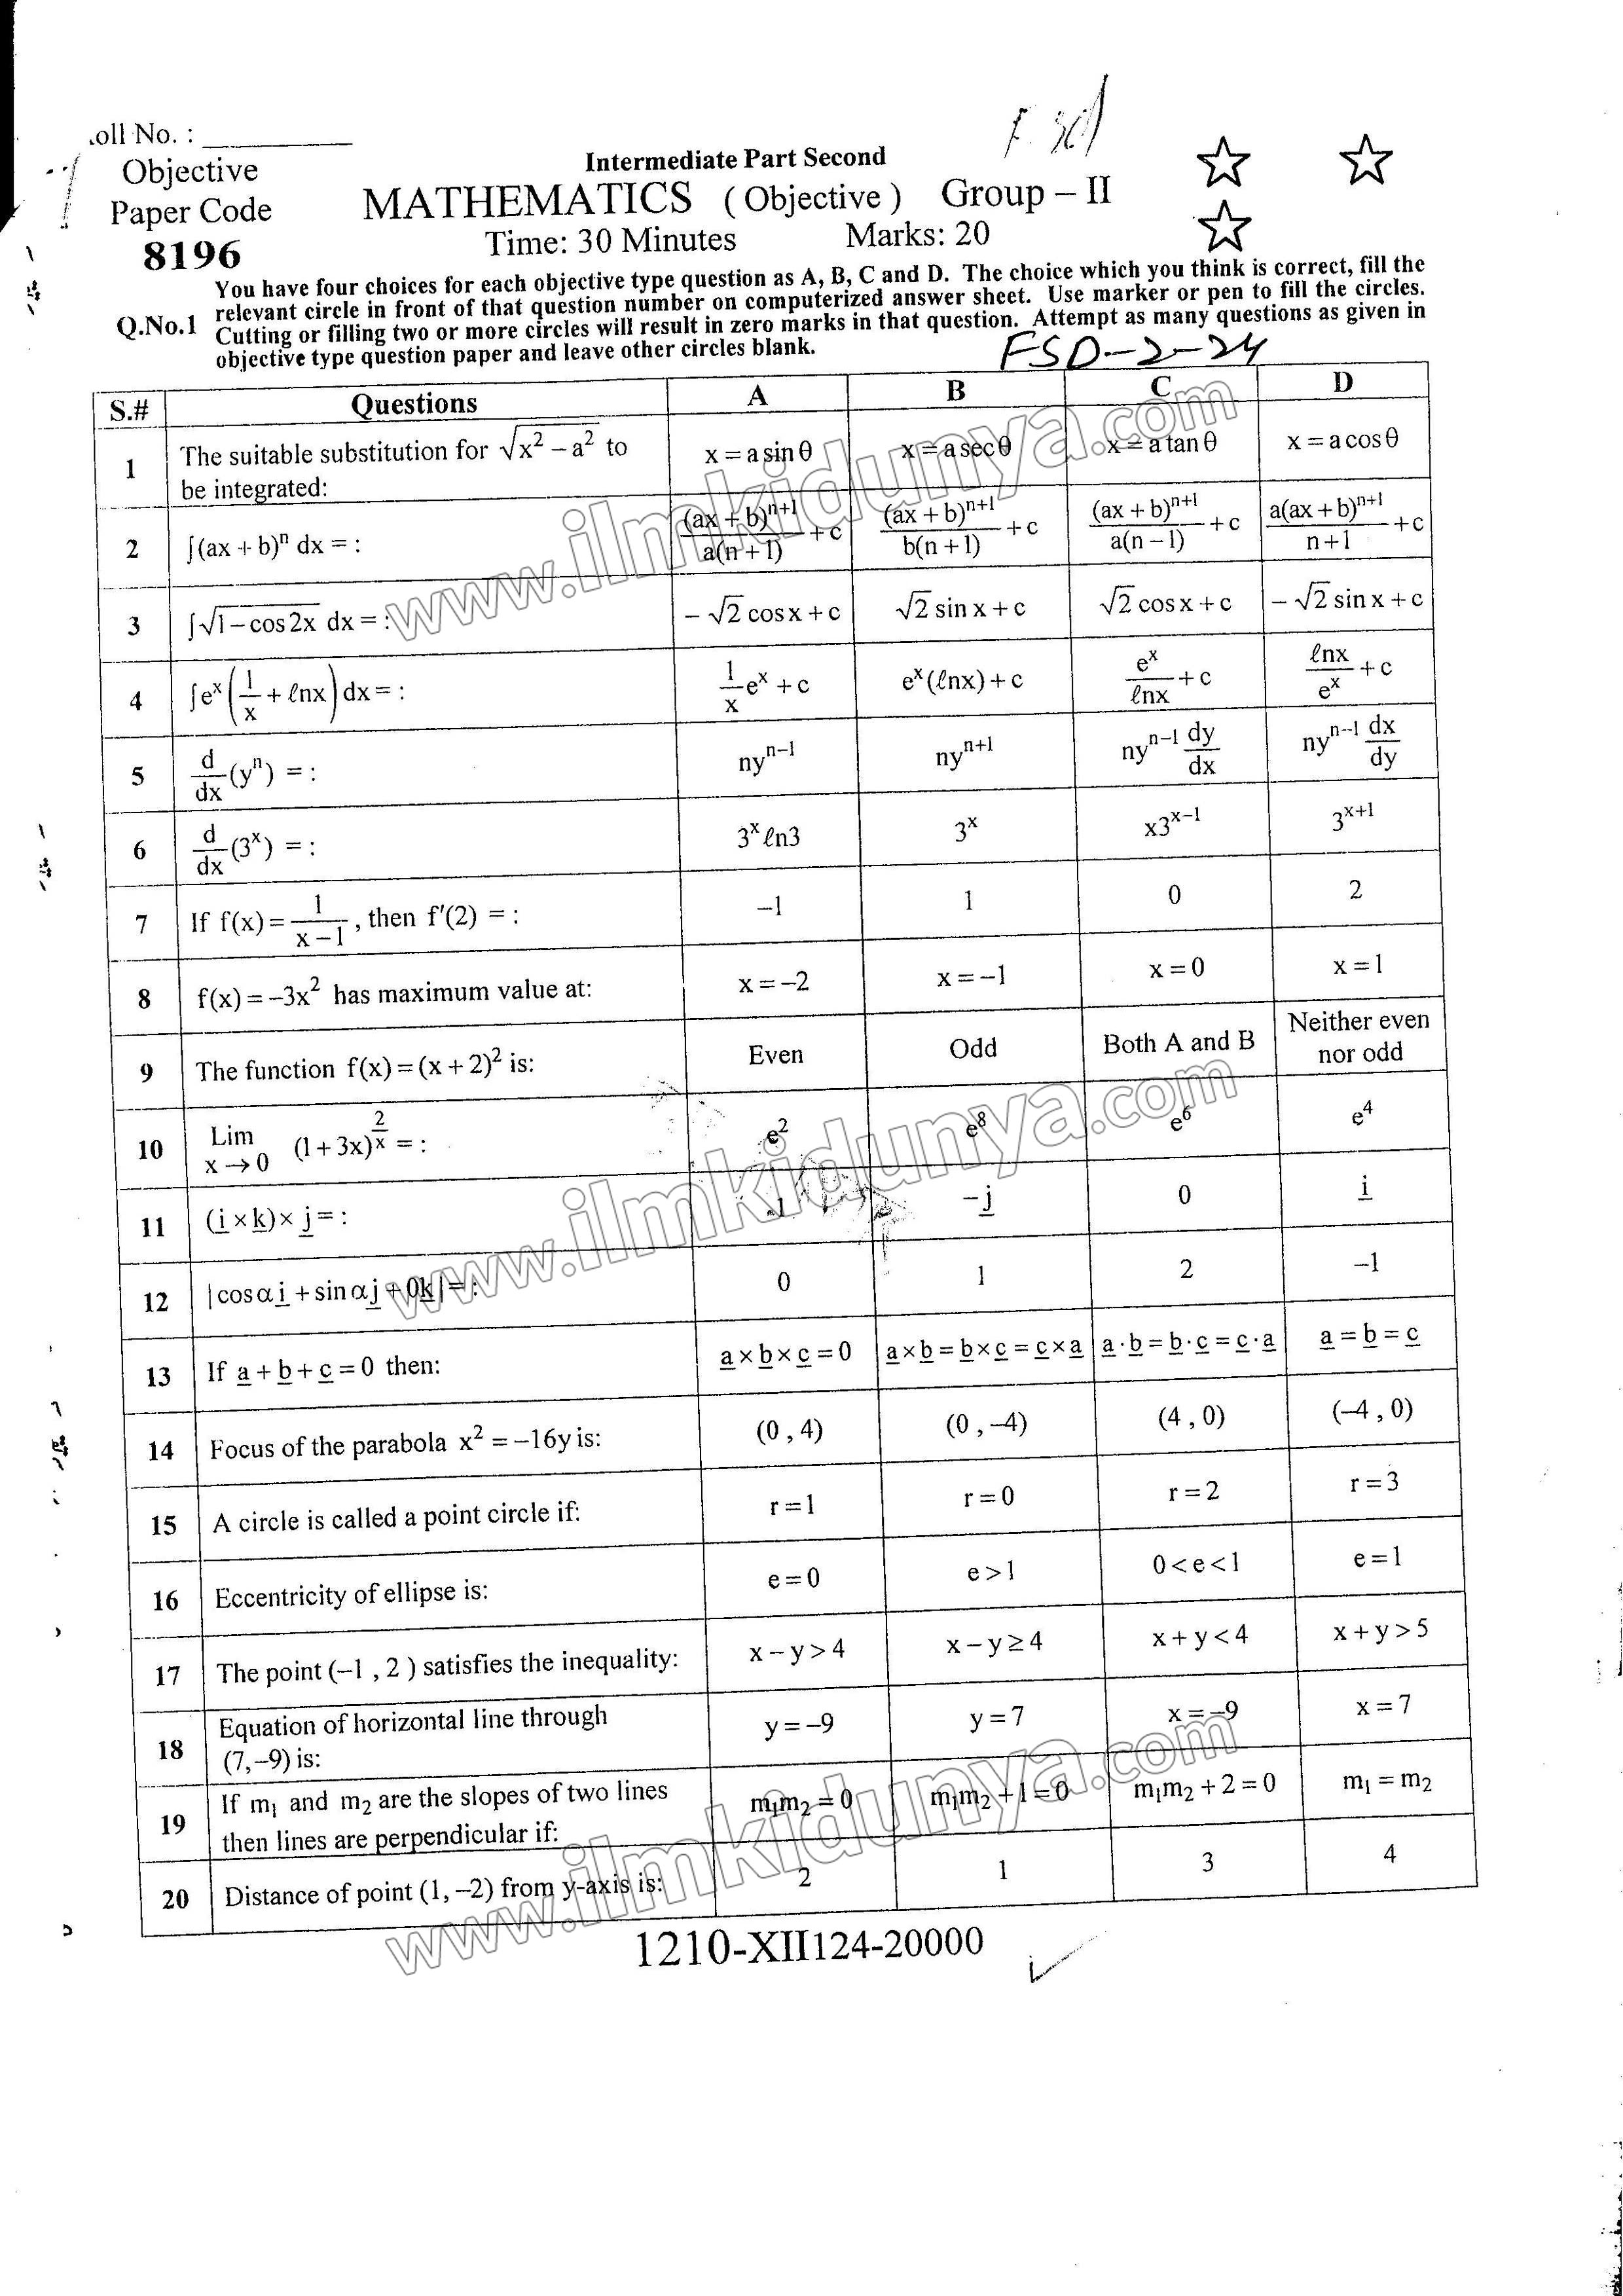 oll No. : __________
Objective
Paper Code
8196
Intermediate Part Second
MATHEMATICS ( Objective ) Group – II
Time: 30 Minutes Marks: 20
Q.No.1 You have four choices for each objective type question as A, B, C and D. The choice which you think is correct, fill the
relevant circle in front of that question number on computerized answer sheet. Use marker or pen to fill the circles.
Cutting or filling two or more circles will result in zero marks in that question. Attempt as many questions as given in
objective type question paper and leave other circles blank.
FSD-2-24
S.# Questions A B C D
1 The suitable substitution for √(x² – a²) to be integrated: x = a sin θ x = a sec θ x = a tan θ x = a cos θ
2 ∫(ax + b)ⁿ dx = : (ax + b)ⁿ⁺¹/a(n + 1) + c (ax + b)ⁿ⁺¹/b(n + 1) + c (ax + b)ⁿ⁺¹/a(n – 1) + c a(ax + b)ⁿ⁺¹/n + 1 + c
3 ∫√(1 – cos 2x) dx = : – √2 cos x + c √2 sin x + c √2 cos x + c – √2 sin x + c
4 ∫eˣ(1/x + ℓnx) dx = : 1/x eˣ + c eˣ(ℓnx) + c eˣ/ℓnx + c ℓnx/eˣ + c
5 d/dx (yⁿ) = : nyⁿ⁻¹ nyⁿ⁺¹ nyⁿ⁻¹ dy/dx nyⁿ⁻¹ dx/dy
6 d/dx (3ˣ) = : 3ˣ ℓn3 3ˣ x3ˣ⁻¹ 3ˣ⁺¹
7 If f(x) = 1/(x – 1), then f′(2) = : –1 1 0 2
8 f(x) = –3x² has maximum value at: x = –2 x = –1 x = 0 x = 1
9 The function f(x) = (x + 2)² is: Even Odd Both A and B Neither even nor odd
10 Lim x → 0 (1 + 3x)^(2/x) = : e² e⁸ e⁶ e⁴
11 (i × k) × j = : –j 0 i
12 |cos α i + sin α j + 0k| = : 0 1 2 –1
13 If a + b + c = 0 then: a × b × c = 0 a × b = b × c = c × a a · b = b · c = c · a a = b = c
14 Focus of the parabola x² = –16y is: (0 , 4) (0 , –4) (4 , 0) (–4 , 0)
15 A circle is called a point circle if: r = 1 r = 0 r = 2 r = 3
16 Eccentricity of ellipse is: e = 0 e > 1 0 < e < 1 e = 1
17 The point (–1 , 2 ) satisfies the inequality: x – y > 4 x – y ≥ 4 x + y < 4 x + y > 5
18 Equation of horizontal line through (7,–9) is: y = –9 y = 7 x = –9 x = 7
19 If m₁ and m₂ are the slopes of two lines then lines are perpendicular if: m₁m₂ = 0 m₁m₂ + 1 = 0 m₁m₂ + 2 = 0 m₁ = m₂
20 Distance of point (1, –2) from y-axis is: 2 1 3 4
1210-XII124-20000
www.ilmkidunya.com
www.ilmkidunya.com
www.ilmkidunya.com